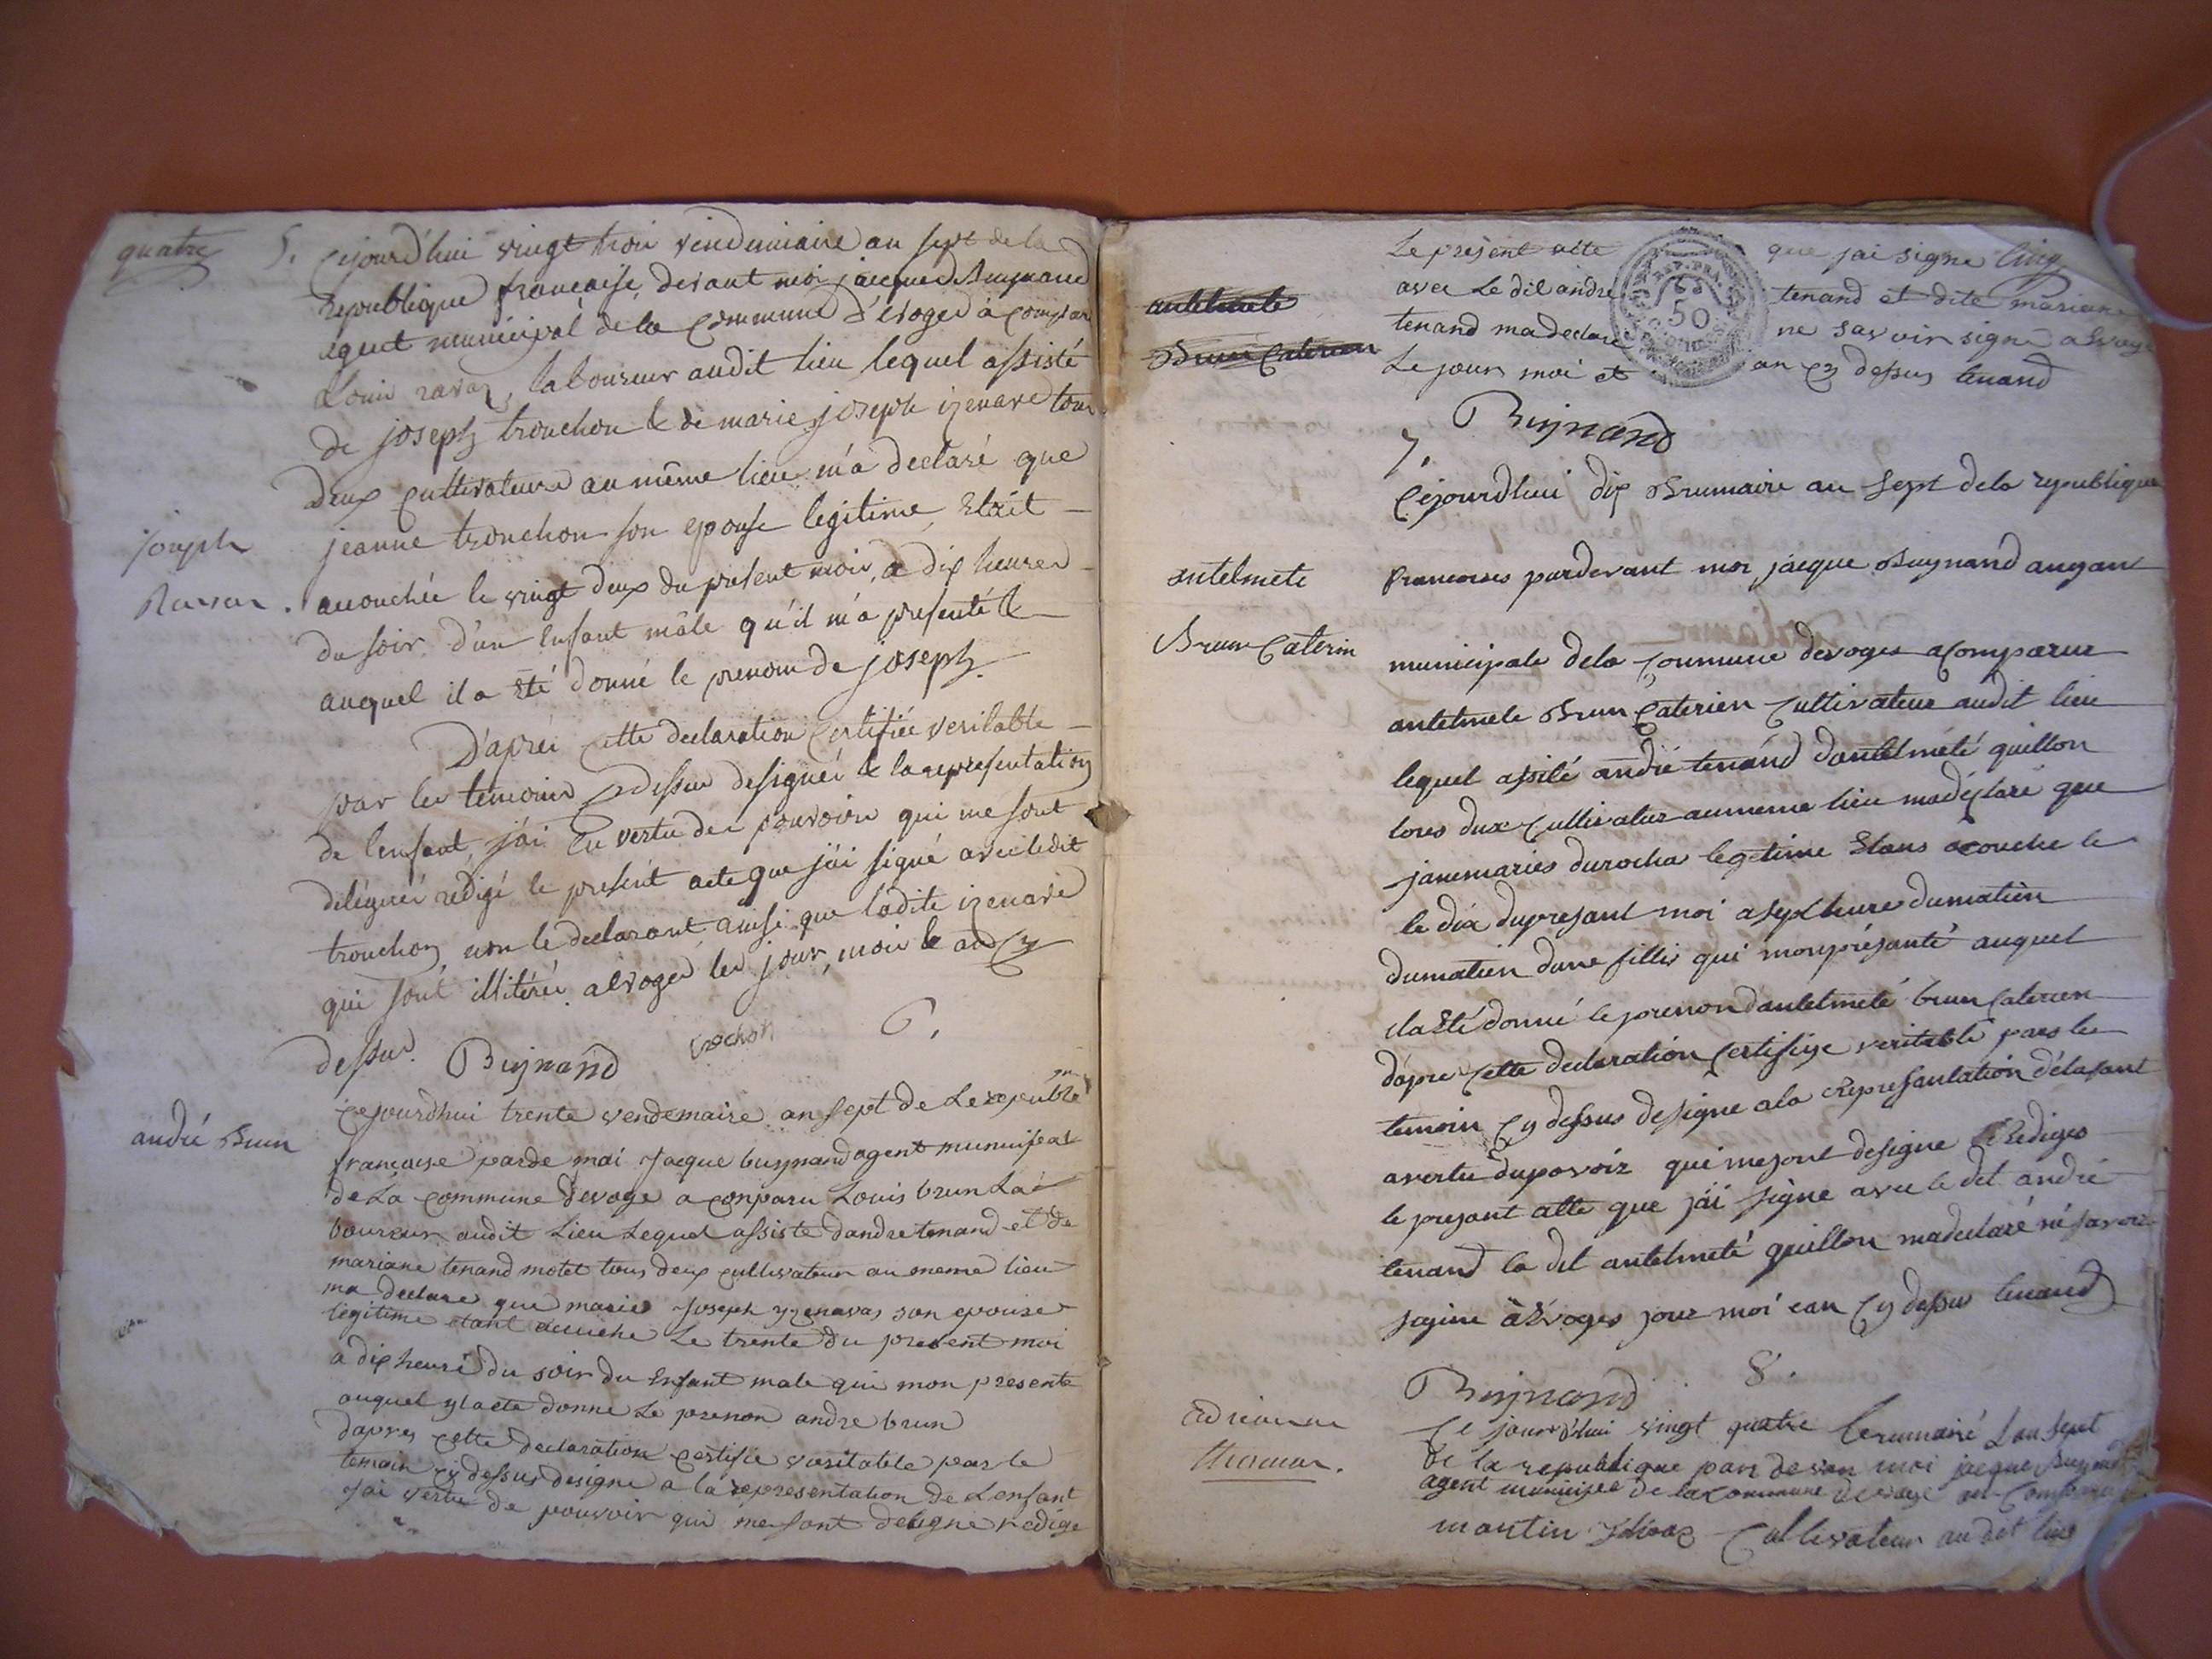 quatre
5.
Cejourd'hui vingt trois vendemiaire an sept de la
republique française, devant moi jacques Buynand
agent municipal de la Commune d'évoges a compar
Louis ravaz, laboureur audit lieu lequel assisté
de joseph trouchon & de marie joseph izenare tous
deux cultivateurs au même lieu m'a déclaré que
jeanne trouchon son epouse legitime était
joseph
Ravaz.
accouchée le vingt deux du present mois, a dix heures
du soir d'un enfant mâle qu'il m'a presenté &
auquel il a été donné le prenom de joseph.
D'après cette declaration certifiée veritable
par les temoins cy dessus designés & la representation
de l'enfant, j'ai en vertu des pouvoirs qui me sont
délégués rédigé le present acte que j'ai signé avec ledit
trouchon, non le declarant ainsi que ladite izenare
qui sont illitérés. a évoges les jour, mois & an cy
dessus. Buynand trochon
6.
andré Brun
Cejourdhui trente vendemaire an sept de Le republi
françoise parde moi Jacque buynand agent municipal
de La commune devoge a conparu Louis brun La
boureur audit Lieu Lequel assiste dandre tenand et de
mariane tenand motet tous deux cultivateur au meme lieu
ma declare que marie Joseph yzenavas son epouse
legitime etant acuche Le trente du present moi
a dix heure du soir du enfant male qui mon presente
auquel yl a ete donne Le prenon andre brun
dapres cette declaration certifie varitable par le
temain cy dessus designe a la representation de Lenfant
Jai vertu de pouvoir qui me sont delegne redige
Le present acte que jai signe cinq
avec Le dit andre tenand et dite mariane
tenand ma declare ne savoir signe a Evoge
Le jour moi et an cy dessus tenand
REP. FRA.
50
antelmete
Brun Caterien
Buynand
7.
Cejourdhui dix Brumaire an sept dela republique
antelmete
Brun Caterin
francoises pardevant moi jacque Buynand augant
municipale dela Commune devoges a comparue
antelmete Brun Caterien Cultivateur audit lieu
lequel assité andré tenand dantelmeté guillon
tous dux Cultivatur aumeme lieu madeclaré que
janemaries durocha legetime Etans acouche le
le dix dupresant moi a sept heure dumatien
dumatien dune fillis qui monprésanté auquel
ila Eté donné le prenon dantelmeté brun Caterien
dápre Cette declaration Certifiye veritable pars le
temoin Cy dessus designe a la Represantation délafant
avertu dupovoir qui mesont designe Rediges
le presant atte que jái signe avec le dit andré
tenand la dit antelmeté guillon madeclaré né savoir
sagine à Evoges jour moi ean Cy dessus tenand
Buynand
8.
Ce jourd'hui vingt quatre brumaire Lan sept
de la republique par devan moi jacque Buynan
agent municipee de la commune devoge
martin Cultivateur au dit lieu